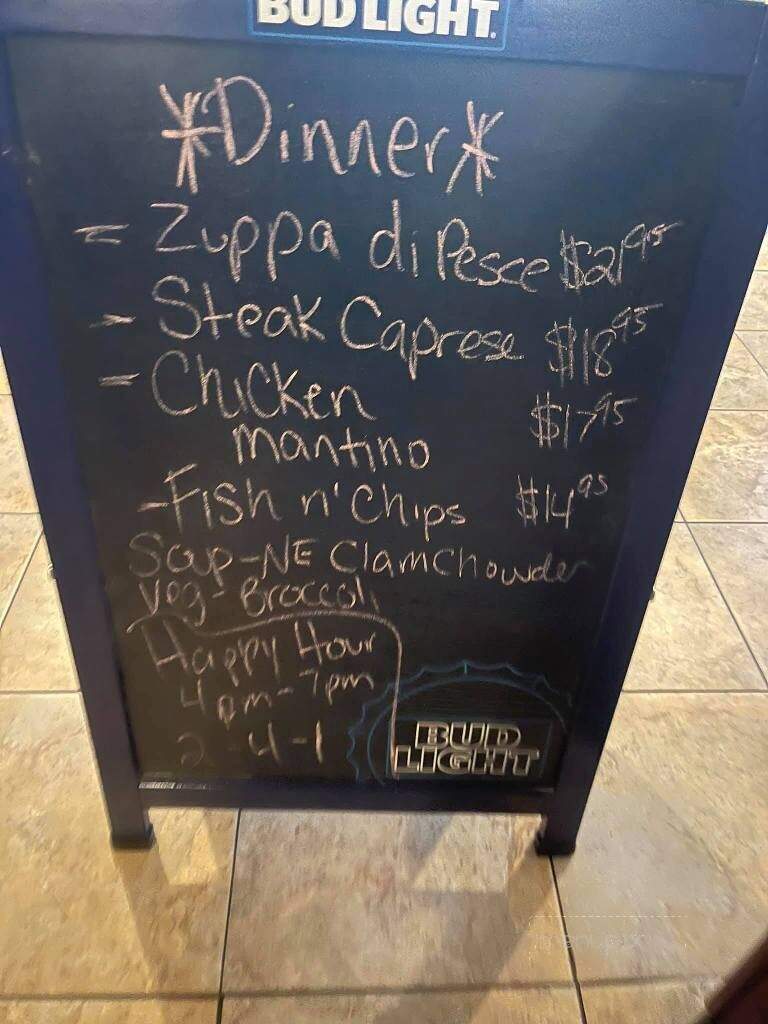 BUD LIGHT.
*Dinner*
- Zuppa di Pesce $21.95
- Steak Caprese $18.95
- Chicken $17.95
mantino
- Fish n' Chips $14.95
Soup-NE Clam Chowder
Veg- Broccoli
Happy Hour
4pm-7pm
2-4-1
BUD
LIGHT